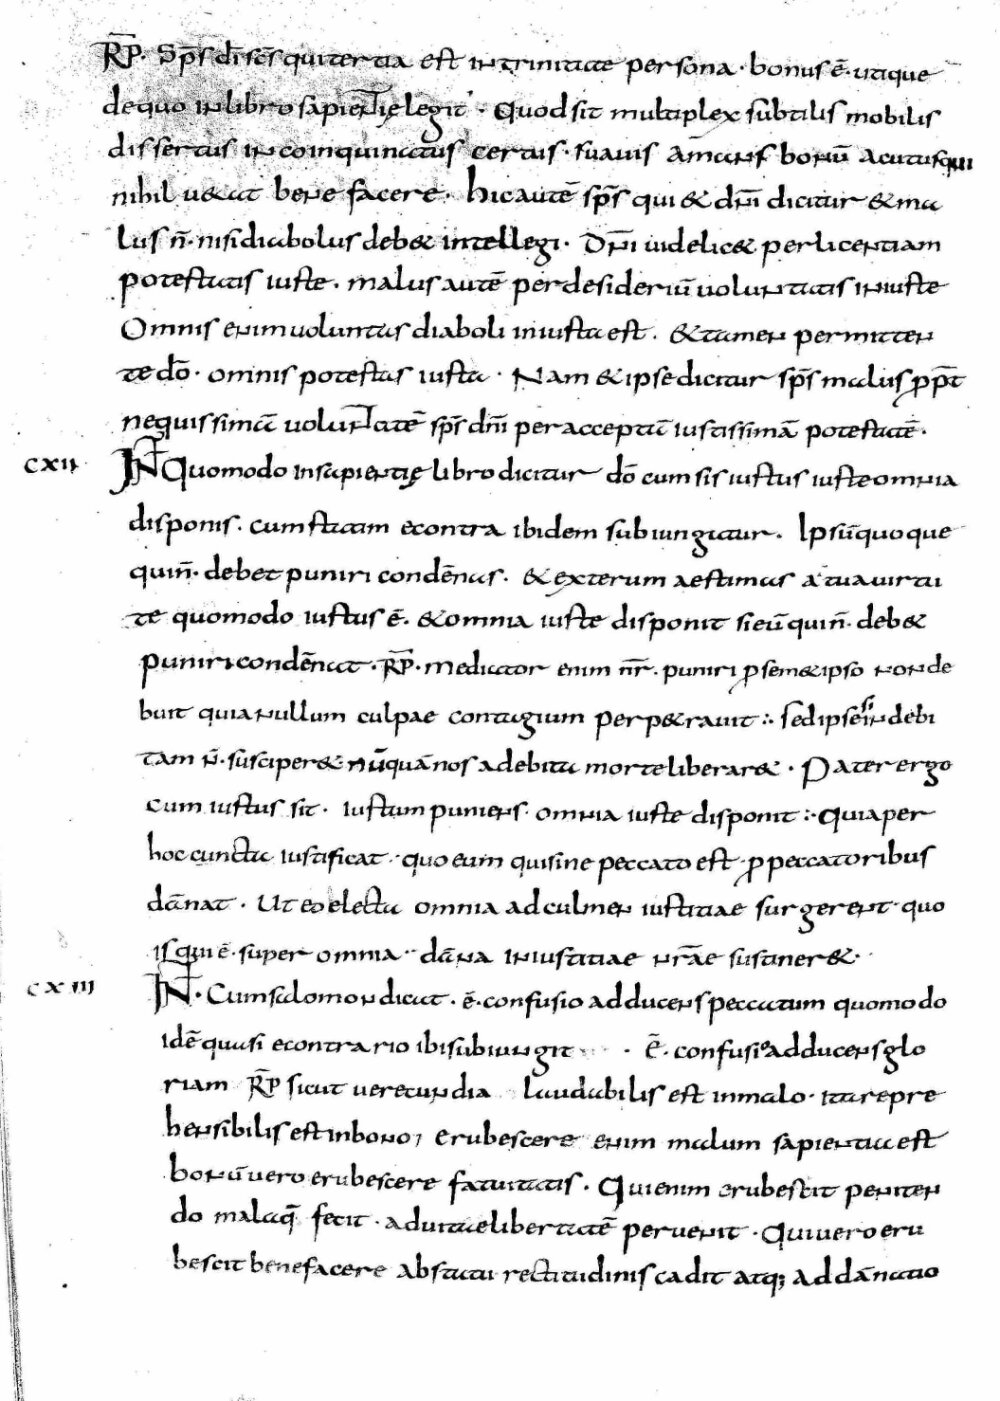 R̅P̅. Sp̅s d̅i sc̅s qui tertia est in trinitate persona. bonus ē. utique
de quo in libro sapientię legit̄. Quod sit multiplex subtilis mobilis
dissertus incoinquinatus certus. suavis amans bonū acutus qui
nihil u&at bene facere. hic autē sp̅s qui & dn̅i dicitur & ma
lus n̄. nisi diabolus deb& intellegi. Dn̅i uidelic& per licentiam
potestatis iuste. malus autē per desideriū uoluntatis iniuste
Omnis enim uoluntas diaboli iniusta est. & tamen permitten
te do̅. omnis potestas iusta. Nam & ipse dicitur sp̅s malus ꝓpt̄
nequissimā uoluntatē sp̅s dn̅i per acceptā iustissimā potestatē.
CXII IN̄ Quomodo in sapientię libro dicitur do̅ cum sis iustus iuste omnia
disponis. cum statim econtra ibidem subiungitur. Ipsūquoque
qui n̄. debet puniri condēnas. & exterum aestimas a tua uirtu
te quomodo iustus ē. & omnia iuste disponit si eū qui n̄. deb&
puniri condēnat. R̅P̅. mediator enim nr̅. puniri ꝓ sem& ipso non de
buit quia nullum culpae contagium perp&rauit : sed ipse si indebi
tam n̄. susciper& nūquā nos a debita morte liberar&. Pater ergo
cum iustus sit. iustum puniens. omnia iuste disponit : Quia per
hoc cuncta iustificat. quo eum qui sine peccato est. ꝓ peccatoribus
dānat. Ut eo electa omnia ad culmen iustitiae surgerent. quo
is qui ē. super omnia. dāna iniustitiae nrāe sustiner&.
CXIII IN̄. Cum salomon dicat. ē. confusio adducens peccatum quomodo
idē quasi e contrario ibi subiungit . ē. confusio adducens glo
riam R̅P̅ sicut uerecundia laudabilis est in malo. ita repre
hensibilis est in bono; erubescere enim malum sapientia est
bonū uero erubescere fatuitatis. Qui enim erubescit peniten
do mala q̄ fecit. ad uitae libertatē peruenit. Qui uero eru
bescit benefacere a bstatu rectitudinis cadit atq; ad dānatio